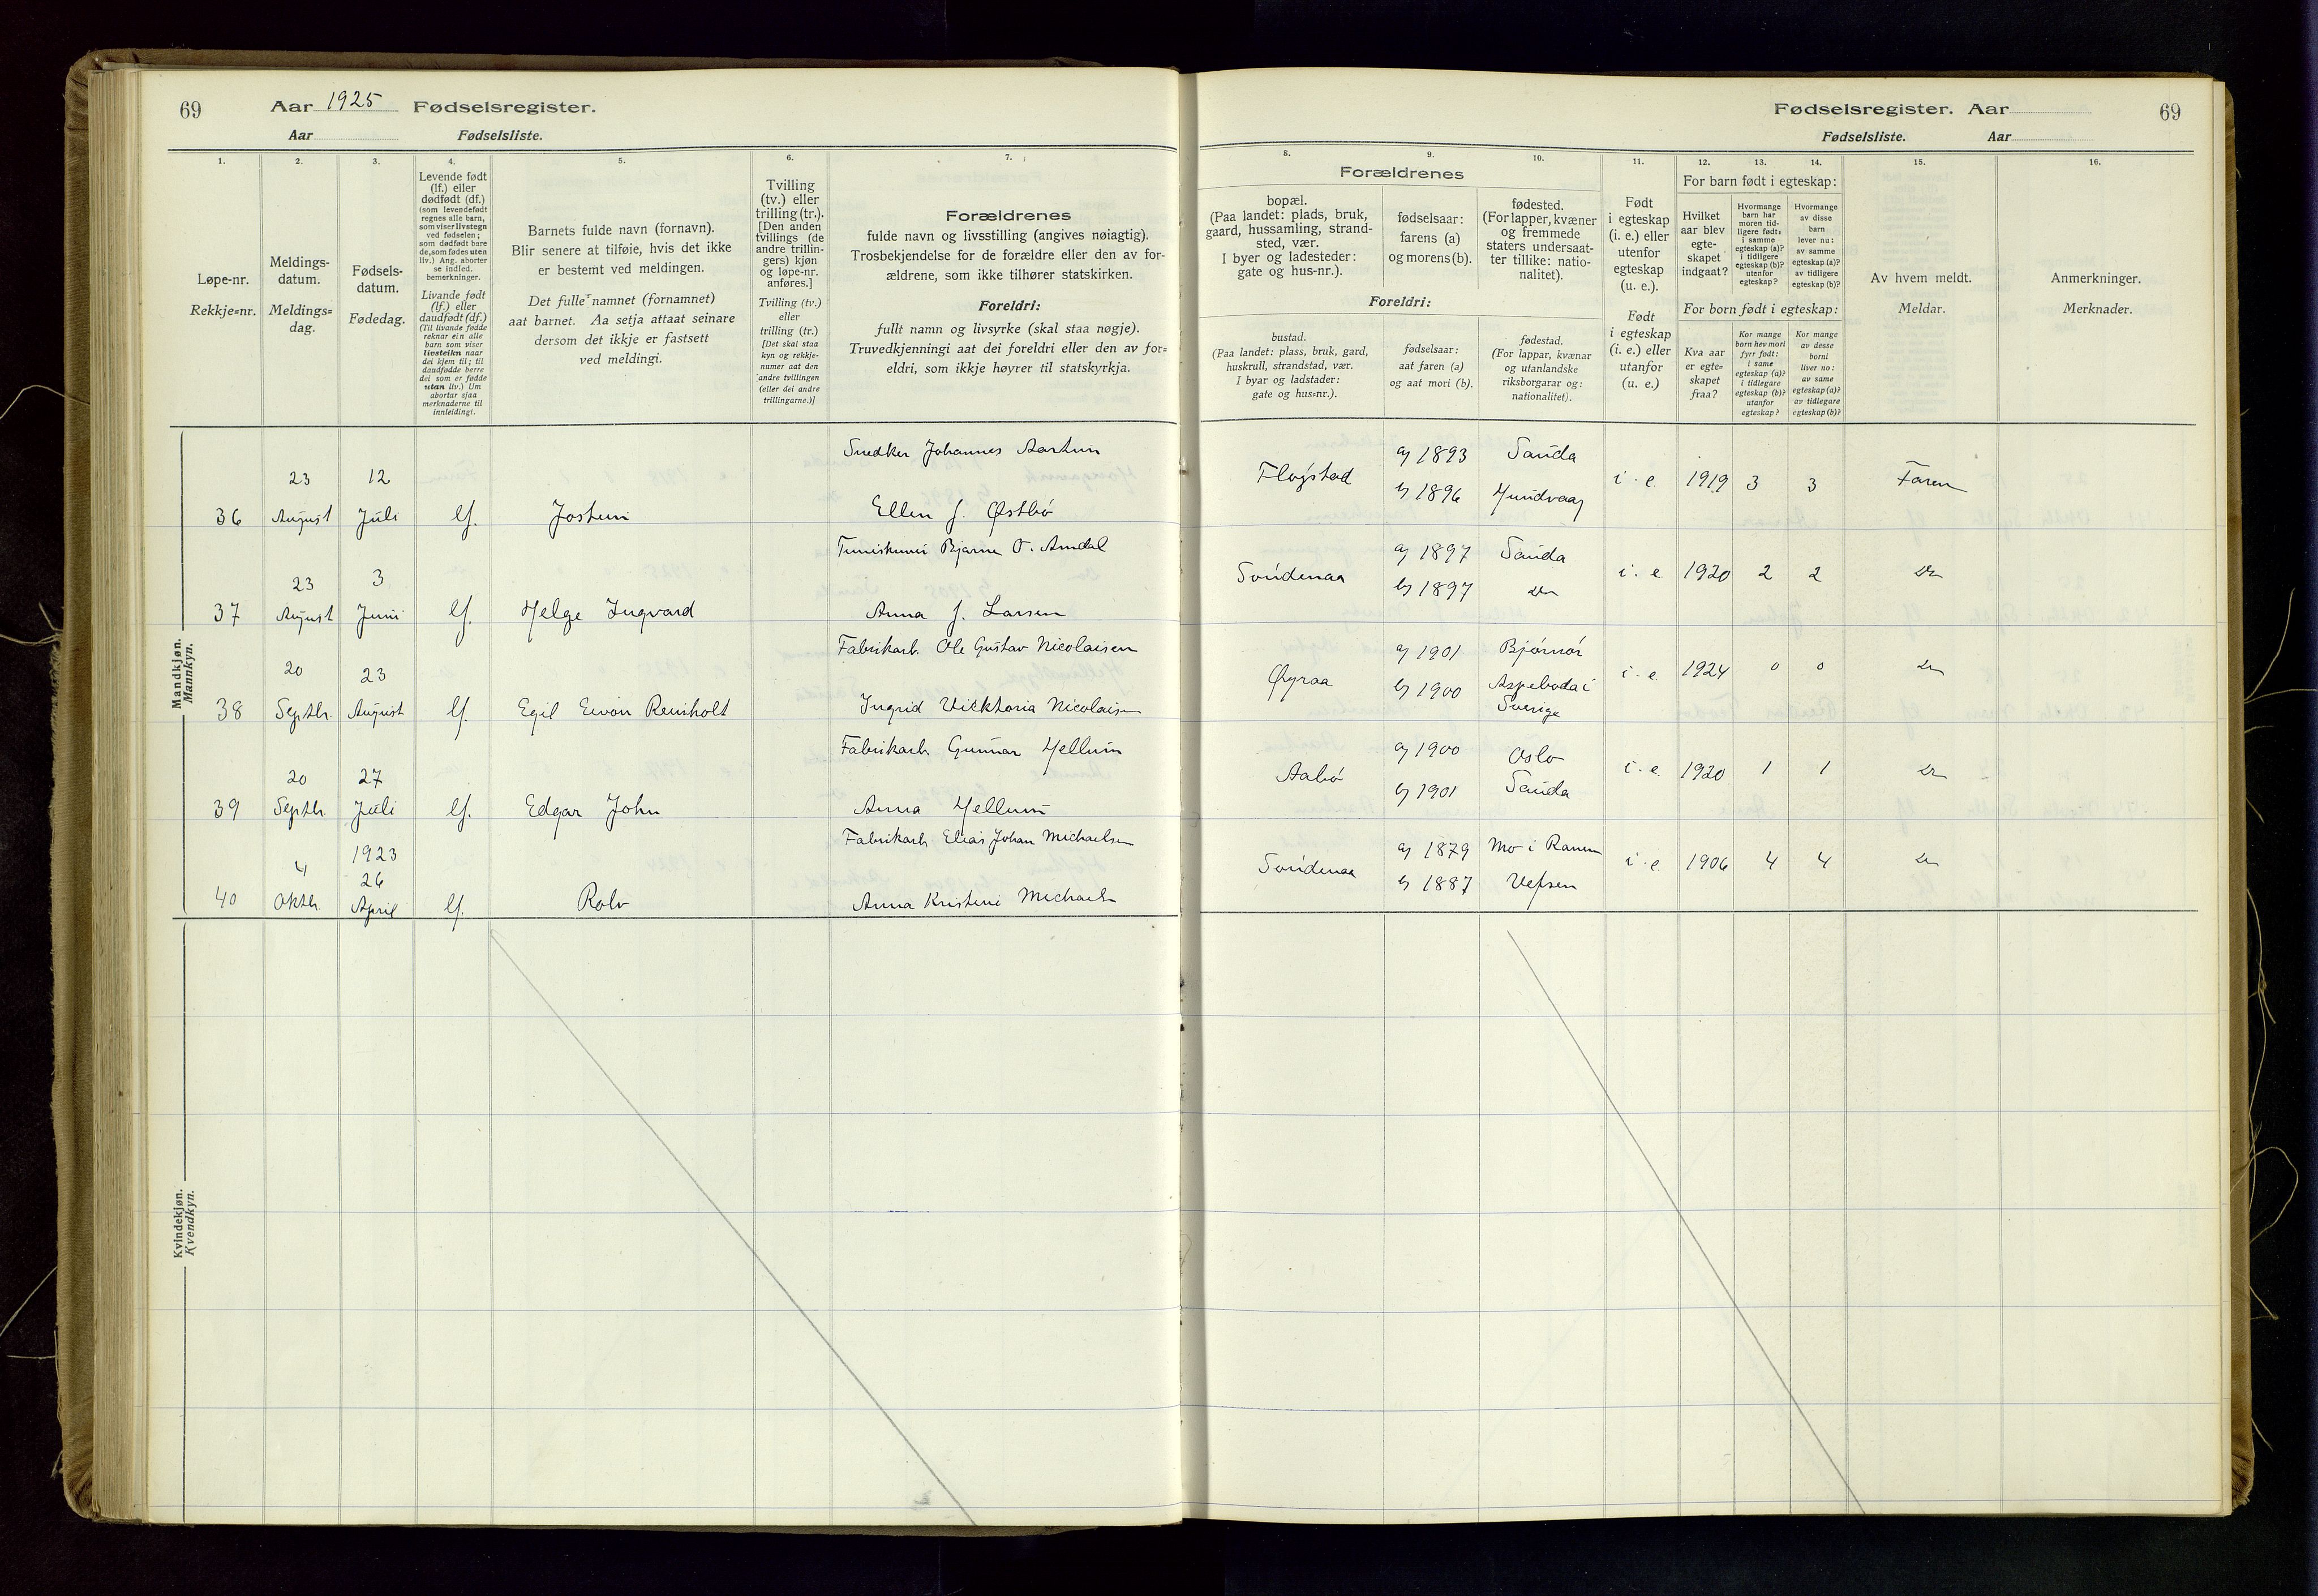 69 Aar 1925 Fødselsregister.
Aar Fødselsliste.
1. 2. 3. 4. 5. 6. 7.
Løpe-nr.
Rekkje=nr.
Meldings-
datum.
Meldings=
dag.
Fødsels-
datum.
Fødedag.
Levende født
(lf.) eller
dødfødt (df.)
(som levendefødt
regnes alle barn,
som viser livstegn
ved fødselen;
som dødfødt bare
de, som fødes uten
liv.) Ang. aborter
se indled.
bemerkninger.
Livande født
(lf.) eller
daudfødt (df.)
(Til livande fødde
reknar ein alle
barn som viser
livsteikn naar
dei kjem til; til
daudfødde berre
dei som er fødde
utan liv.) Um
abortar sjaa
merknaderne til
innleidingi.
Barnets fulde navn (fornavn).
Blir senere at tilføie, hvis det ikke
er bestemt ved meldingen.
Det fulle namnet (fornamnet)
aat barnet. Aa setja attaat seinare
dersom det ikkje er fastsett
ved meldingi.
Tvilling
(tv.) eller
trilling (tr.).
[Den anden
tvillings (de
andre trillin-
gers) kjøn
og løpe-nr.
anføres.]
Tvilling (tv.)
eller
trilling (tr.)
[Det skal staa
kyn og rekkje-
numer aat den
andre tvillingen
(eller dei andre
trillingarne.)]
Forældrenes
fulde navn og livsstilling (angives nøiagtig).
Trosbekjendelse for de forældre eller den av for-
ældrene, som ikke tilhører statskirken.
Foreldri:
fullt namn og livsyrke (skal staa nøgje).
Truvedkjenningi aat dei foreldri eller den av for=
eldri, som ikkje høyrer til statskyrkja.
Mandkjøn.
Mannkyn.
Snedker Johannes Aartun
23 12
36 August Juli lf. Jostein Ellen J. Østbø
Bjarne O. Amdal
23 3
37 August Juni lf. Helge Ingvard Anna J. Larsen
Fabrikarb. Ole Gustav Nicolaisen
20 23
38 Septbr. August lf. Egil Eivon Reinholt Ingrid Vicktoria Nicolaisen
Fabrikarb. Gunnar Hellum
20 27
39 Septbr. Juli lf. Edgar John Anna Hellum
Fabrikarb. Elias Johan Michaelsen
1923
4 26
40 Oktbr. April lf. Rolv Anna Kristine Michaelsen
Kvindekjøn.
Kvendkyn.
Fødselsregister. Aar 69
Fødselsliste. Aar
8. 9. 10. 11. 12. 13. 14. 15. 16.
Forældrenes
bopæl.
(Paa landet: plads, bruk,
gaard, hussamling, strand-
sted, vær.
I byer og ladesteder:
gate og hus-nr.).
fødselsaar:
farens (a)
og morens (b).
fødested.
(For lapper, kvæner
og fremmede
staters undersaat-
ter tillike: natio-
nalitet).
Foreldri:
bustad.
(Paa landet: plass, bruk, gard,
huskrull, strandstad, vær.
I byar og ladstader:
gate og hus=nr.).
fødselsaar:
aat faren (a)
og aat mori (b).
fødestad.
(For lappar, kvænar
og utanlandske
riksborgarar og:
nationalitet).
Født
i egteskap
(i. e.) eller
utenfor
egteskap
(u. e.).
Født
i egteskap
(i. e.) eller
utanfor
(u. e.)
For barn født i egteskap:
Hvilket
aar blev
egte-
skapet
indgaat?
Hvormange
barn har
moren tid-
ligere født:
i samme
egteskap (a)?
i tidligere
egteskap (b)?
utenfor
egteskap?
Hvormange
av disse
barn
lever nu:
av samme
egteskap (a)?
av tidligere
egteskap (b)?
For born født i egteskap:
Kva aar
er egte=
skapet
fraa?
Kor mange
born hev mori
fyrr født:
i same
egteskap (a)?
i tidlegare
egteskap (b)?
utanfor
egteskap?
Kor mange
av desse
borni
liver no:
av same
egteskap (a)?
av tidlegare
egteskap (b)?
Av hvem meldt.
Meldar.
Anmerkninger.
Merknader.
a) 1893 Sauda
Fløgstad i. e. 1919 3 3 Faren
b) 1896 Hundvaag
a) 1897 Sauda
Søndenaa i. e. 1920 2 2 Do
b) 1897 Do
a) 1901 Bjørnør
Øyraa i. e. 1924 0 0 Do
b) 1900 Aspeboda i
Sverige
a) 1900 Oslo
Aabø i. e. 1920 1 1 Do
b) 1901 Sauda
a) 1879 Mo i Ranen
Søndenaa i. e. 1906 4 4 Do
b) 1887 Vefsen